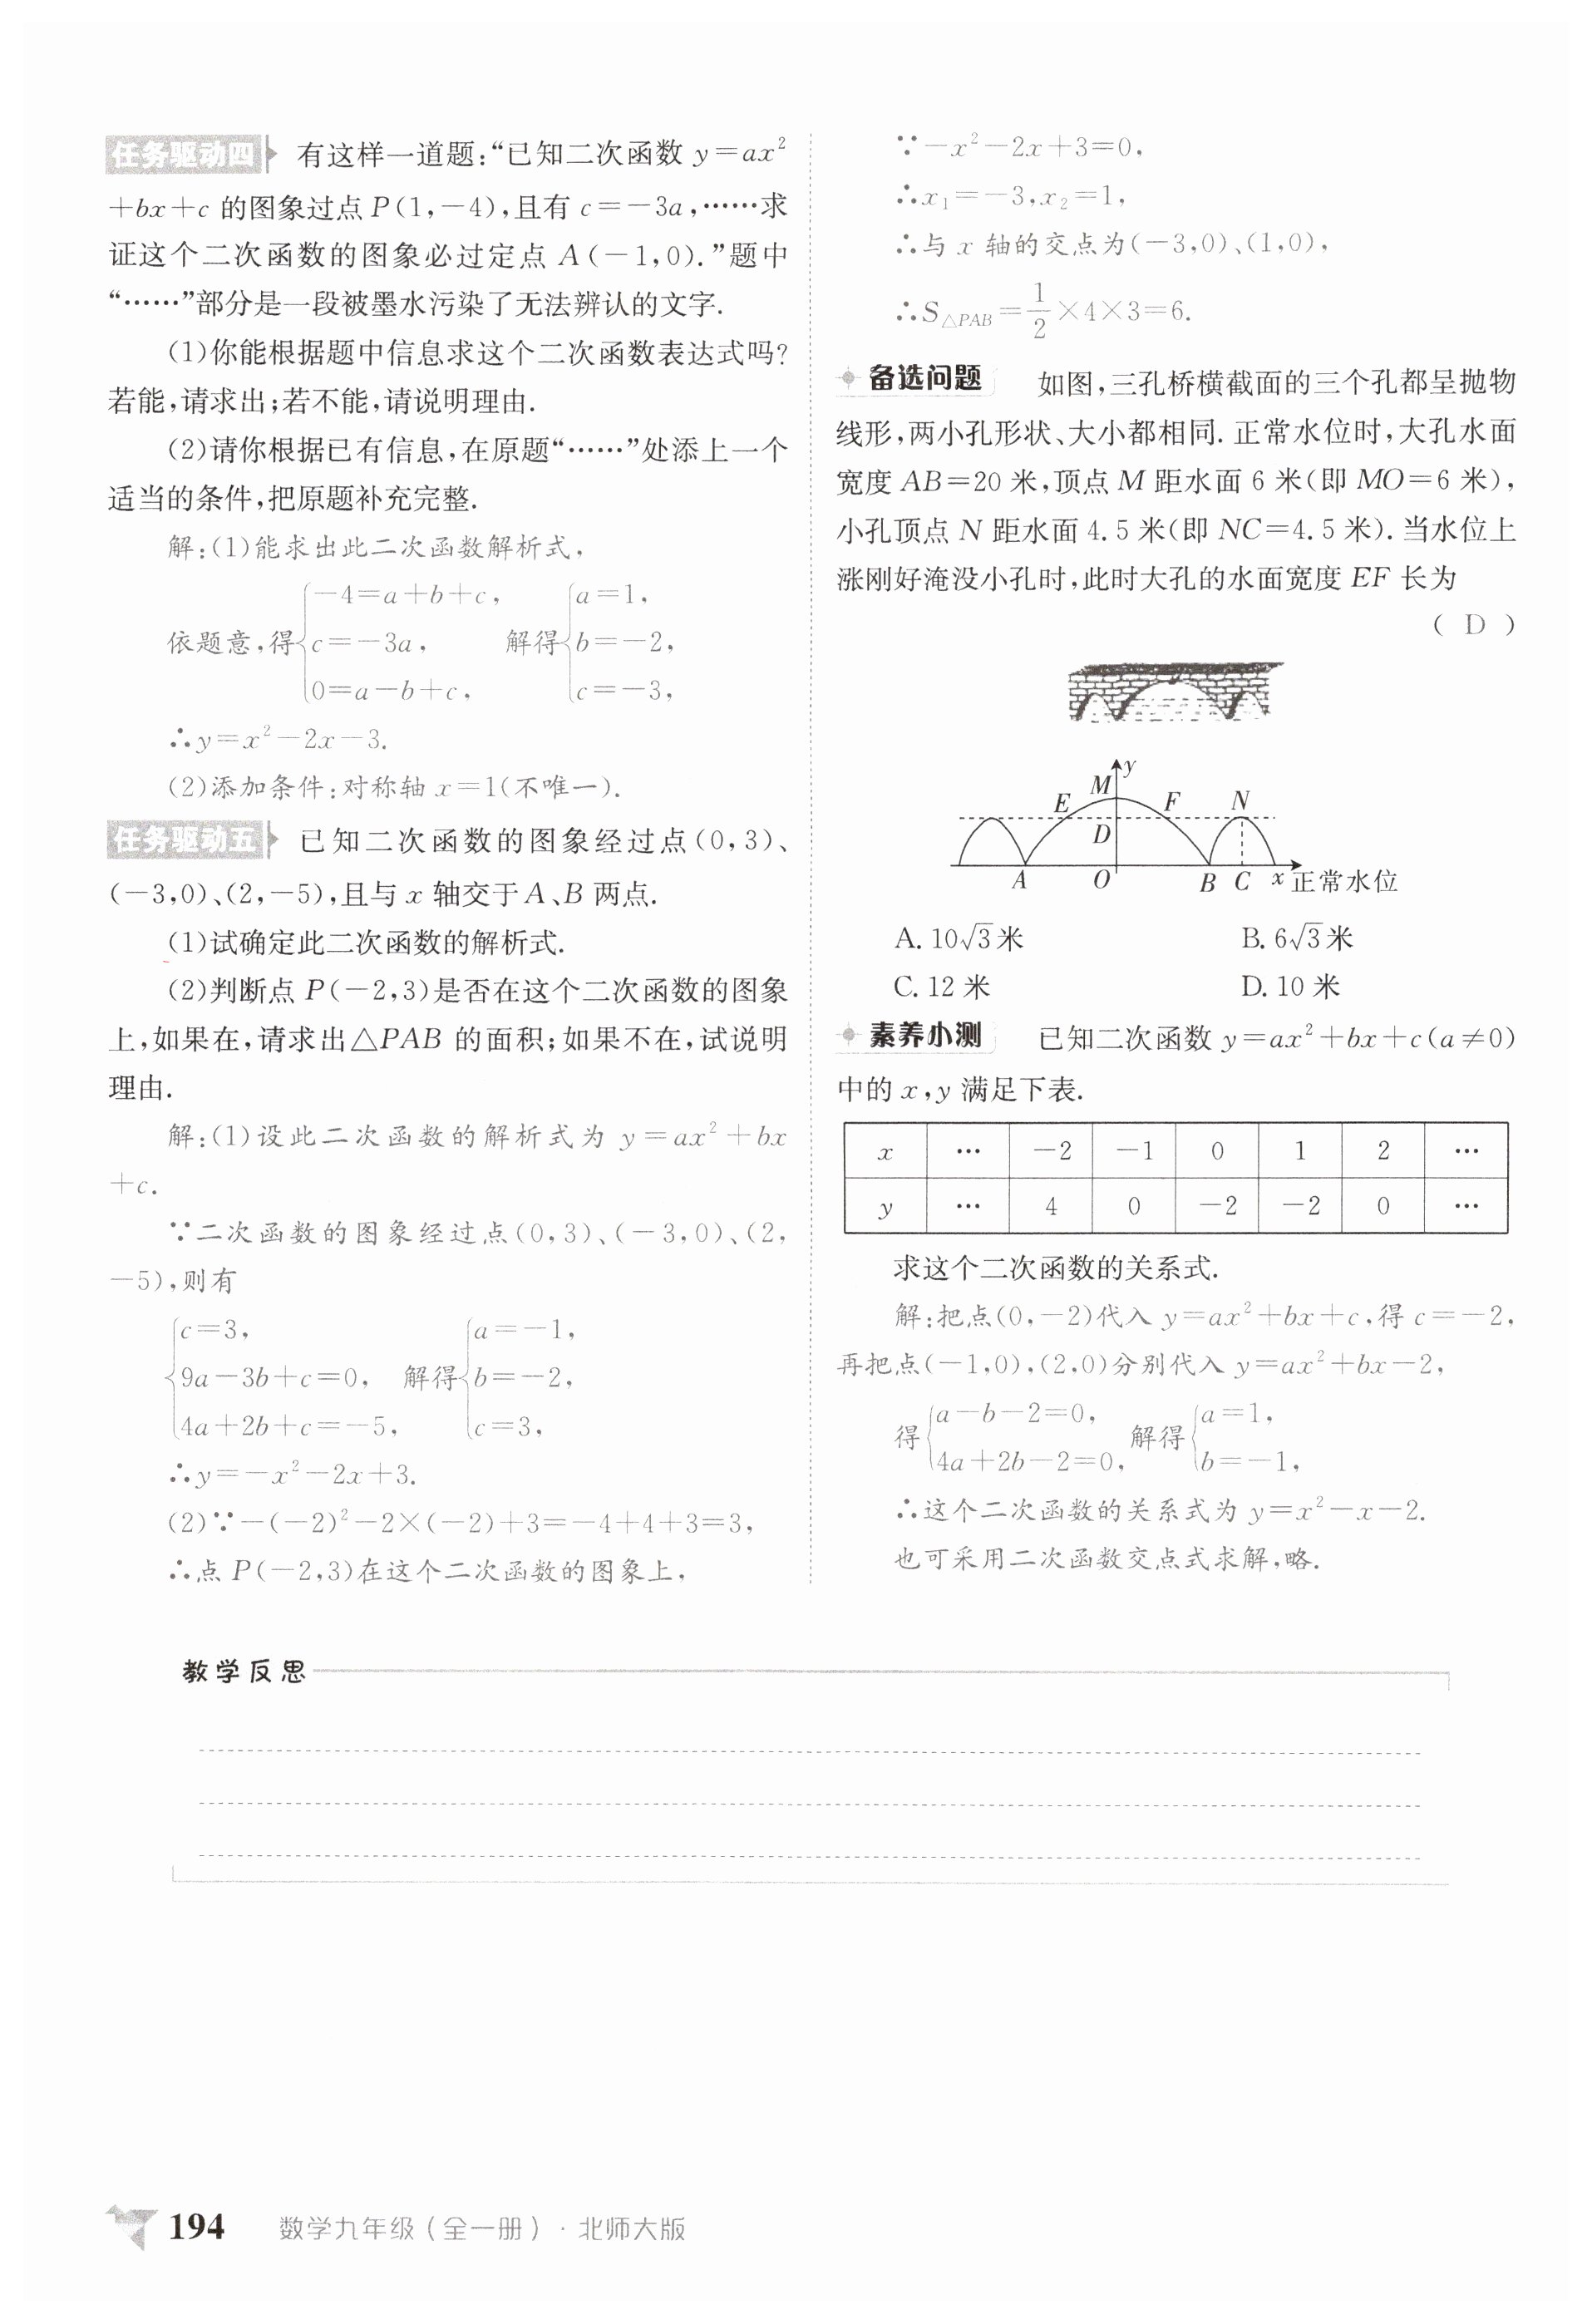 任务驱动四 有这样一道题:“已知二次函数 y=ax²
+bx+c 的图象过点 P(1,-4),且有 c=-3a,……求
证这个二次函数的图象必过定点 A(-1,0).”题中
“……”部分是一段被墨水污染了无法辨认的文字.
(1)你能根据题中信息求这个二次函数表达式吗?
若能,请求出;若不能,请说明理由.
(2)请你根据已有信息,在原题“……”处添上一个
适当的条件,把原题补充完整.
解:(1)能求出此二次函数解析式,
依题意,得{-4=a+b+c, c=-3a, 0=a-b+c, 解得{a=1, b=-2, c=-3,
∴y=x²-2x-3.
(2)添加条件:对称轴 x=1(不唯一).
任务驱动五 已知二次函数的图象经过点(0,3)、
(-3,0)、(2,-5),且与 x 轴交于 A、B 两点.
(1)试确定此二次函数的解析式.
(2)判断点 P(-2,3)是否在这个二次函数的图象
上,如果在,请求出△PAB 的面积;如果不在,试说明
理由.
解:(1)设此二次函数的解析式为 y=ax²+bx
+c.
∵二次函数的图象经过点(0,3)、(-3,0)、(2,
-5),则有
{c=3, 9a-3b+c=0, 4a+2b+c=-5, 解得{a=-1, b=-2, c=3,
∴y=-x²-2x+3.
(2)∵-(-2)²-2×(-2)+3=-4+4+3=3,
∴点 P(-2,3)在这个二次函数的图象上,
∵-x²-2x+3=0,
∴x₁=-3,x₂=1,
∴与 x 轴的交点为(-3,0)、(1,0),
∴S△PAB=1/2×4×3=6.
备选问题 如图,三孔桥横截面的三个孔都呈抛物
线形,两小孔形状、大小都相同.正常水位时,大孔水面
宽度 AB=20 米,顶点 M 距水面 6 米(即 MO=6 米),
小孔顶点 N 距水面 4.5 米(即 NC=4.5 米).当水位上
涨刚好淹没小孔时,此时大孔的水面宽度 EF 长为
( D )
y
M
E F N
D
A O B C x 正常水位
A. 10√3米 B. 6√3米
C. 12 米 D. 10 米
素养小测 已知二次函数 y=ax²+bx+c(a≠0)
中的 x,y 满足下表.
x … -2 -1 0 1 2 …
y … 4 0 -2 -2 0 …
求这个二次函数的关系式.
解:把点(0,-2)代入 y=ax²+bx+c,得 c=-2,
再把点(-1,0),(2,0)分别代入 y=ax²+bx-2,
得{a-b-2=0, 4a+2b-2=0, 解得{a=1, b=-1,
∴这个二次函数的关系式为 y=x²-x-2.
也可采用二次函数交点式求解,略.
教学反思
194 数学九年级(全一册)·北师大版